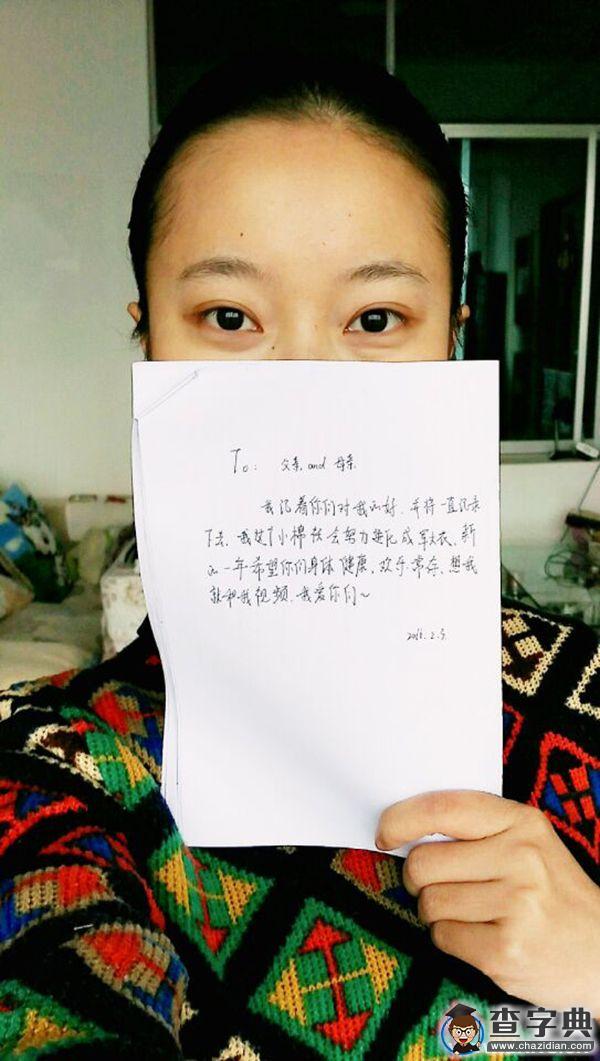 To: 父亲 and 母亲
我记着你们对我的好,并将一直记录
下去,我这个小棉袄会努力进化成军大衣,新
的一年希望你们身体健康,欢乐常存,想我
就和我视频,我爱你们~
2016.2.5.
查字典
www.chazidian.com